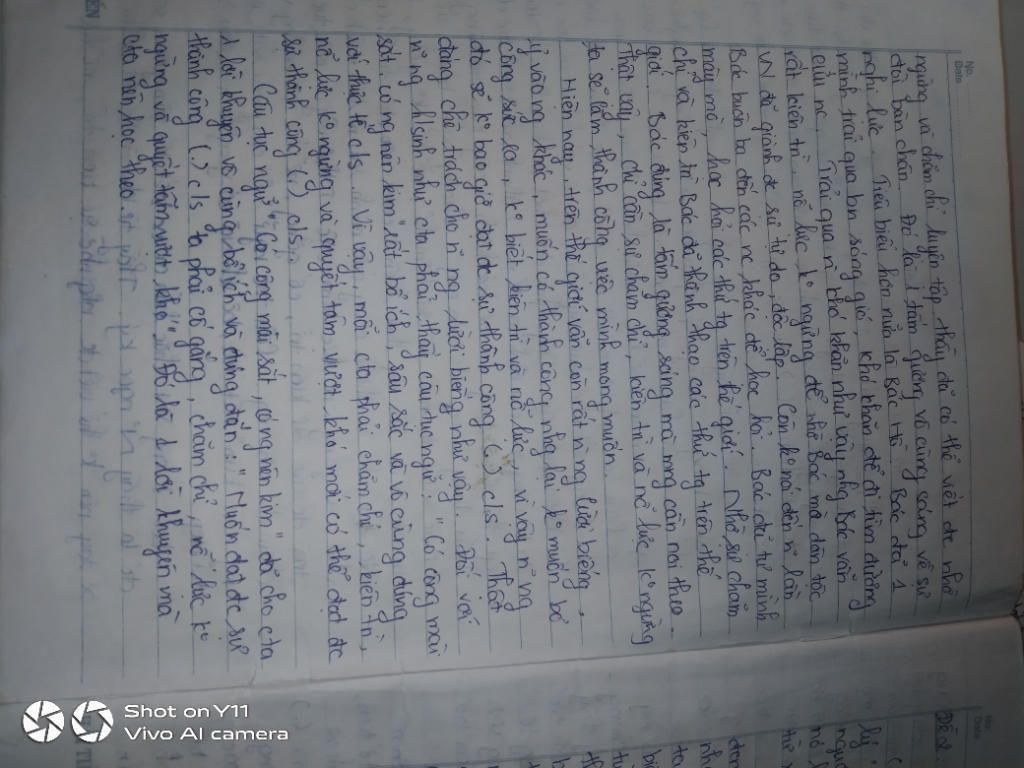 No.
Date
ngừng và chăm chỉ luyện tập, thầy đã có thể viết đc nhờ
đôi bàn chân. Đó là 1 tấm gương vô cùng sáng về sự
nghị lực. Tiêu biểu hơn nữa là Bác Hồ. Bác đã 1
mình trải qua bn sóng gió, khó khăn để đi tìm đường
cứu nc. Trải qua n~ khó khăn như vậy nhg Bác vẫn
rất kiên trì, nỗ lực, ko ngừng để nhờ Bác mà dân tộc
VN đã giành đc sự tự do, độc lập. Còn ko nói đến n~ lần
Bác buôn ba đến các nc khác để học hỏi. Bác đã tự mình
mày mò, học hỏi các thứ tg trên thế giới. Nhờ sự chăm
chỉ và kiên trì Bác đã thành thạo các thứ tg trên thế
giới. Bác đúng là tấm gương sáng mà mng cần noi theo.
Thật vậy, chỉ cần sự chăm chỉ, kiên trì và nỗ lực ko ngừng
ta sẽ làm thành công việc mình mong muốn.
Hiện nay, trên thế giới vẫn còn rất n~ ng lười biếng,
ỷ vào ng khác, muốn có thành công nhg lại ko muốn bỏ
công sức ra, ko biết kiên trì và nỗ lực, vì vậy n~ ng
đó sẽ ko bao giờ đạt đc sự thành công (.) c/s. Thật
đáng chê trách cho n~ ng lười biếng như vậy. Đối với
n~ ng hsinh như cta phải thấy câu tục ngữ: "Có công mài
sắt, có ng nên kim" rất bổ ích, sâu sắc và vô cùng đúng
với thực tế c/s. Vì vậy, mỗi cta phải chăm chỉ, kiên trì,
nỗ lực ko ngừng và quyết tâm vượt khó mới có thể đạt đc
sự thành công (.) c/s.
Câu tục ngữ "Có công mài sắt, có ng nên kim" đã cho cta
1 lời khuyên vô cùng bổ ích và đúng đắn: "Muốn đạt đc sự
thành công (.) c/s ta phải cố gắng, chăm chỉ, nỗ lực ko
ngừng và quyết tâm vượt khó". Đó là 1 lời khuyên mà
cta nên học theo
Shot on Y11
Vivo AI camera